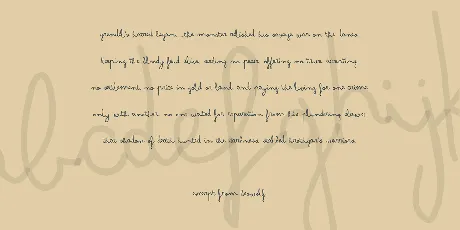 grendel's hatred began, the monster relished his savage war on the danes
keeping the bloody feud alive, seeking no peace, offering no truce, accepting
no settlement, no price in gold or land, and paying the living for one crime
only with another. no one waited for reparation from his plundering claws:
that shadow of death hunted in the darkness, stalked hrothgar's warriors
excerpt from beowulf
abcdefghijk